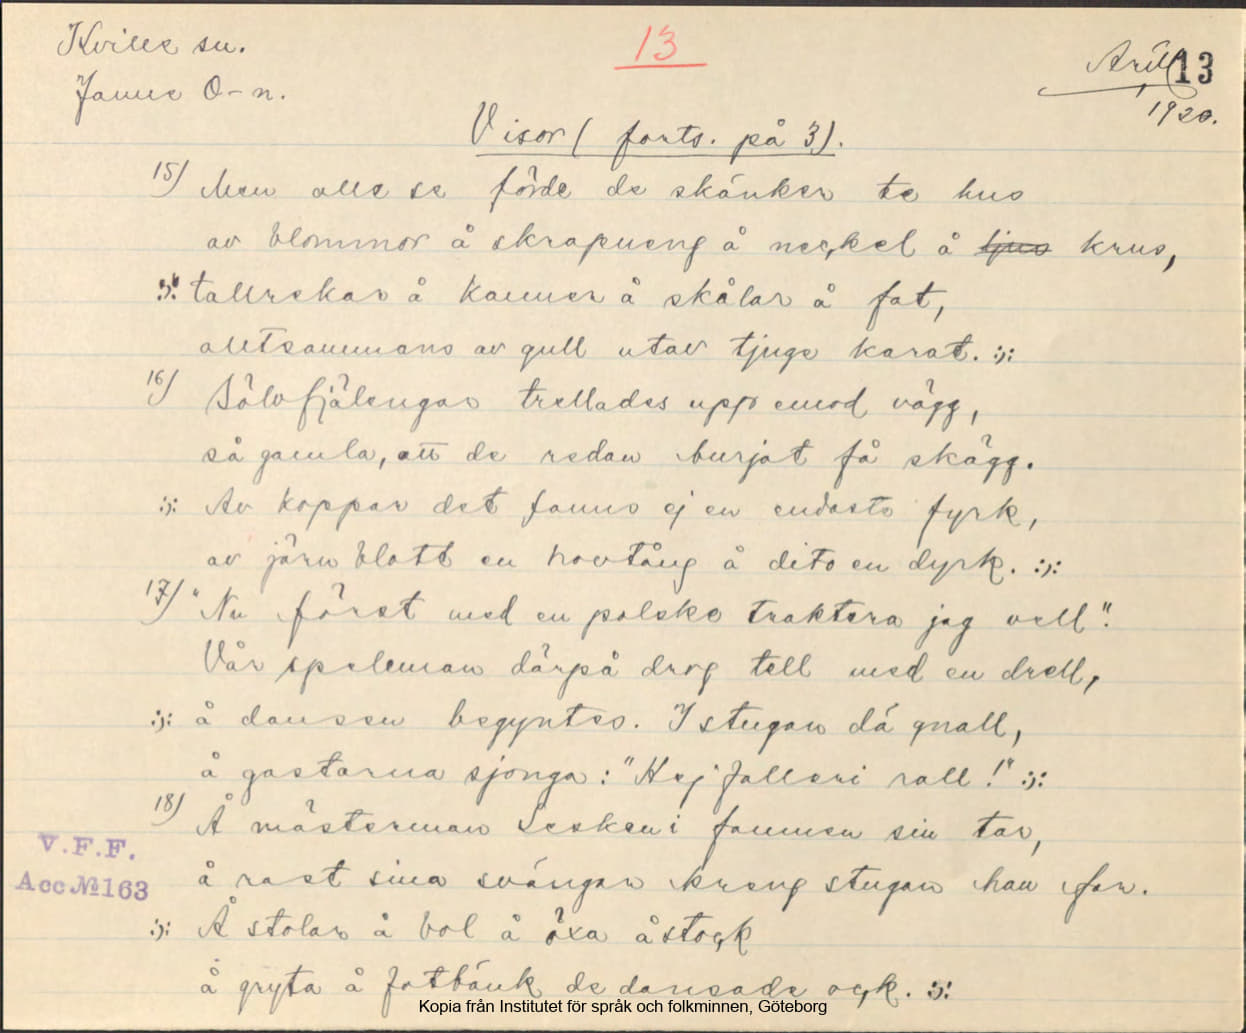 Kville sn.
13
Arill 13
Janne O-n.
1920.
Visor ( forts. på 3).
15) Men alle se förde de skänker te hus
av blommor å skrapueng å neckel å ljus krus,
:;: tallrekar å kanner å skålar å fat,
alltsammans av gull utav tjuge karat. :;:
16) Sölvfjälengar trellades upp emod vägg,
så gamla, att de redan burjat få skägg.
:;: Av koppar det fanns ej en endaste fyrk,
av järn blott en hovtång å dito en dyrk. :;:
17) "Nu först med en polske traktera jag vell".
Vår speleman därpå drog tell med en drell,
:;: å dansen begyntes. I stugan dä gnall,
å gastarna sjonga: "Hej falleri rall!" :;:
18) Å mästerman Lesken i famnen sin tar,
å rast sina svängar kreng stugan han far.
:;: Å stolar å bol å öxa å stock
å gryta å fotbänk de dansade ock. :;:
V.F.F.
Acc № 163
Kopia från Institutet för språk och folkminnen, Göteborg